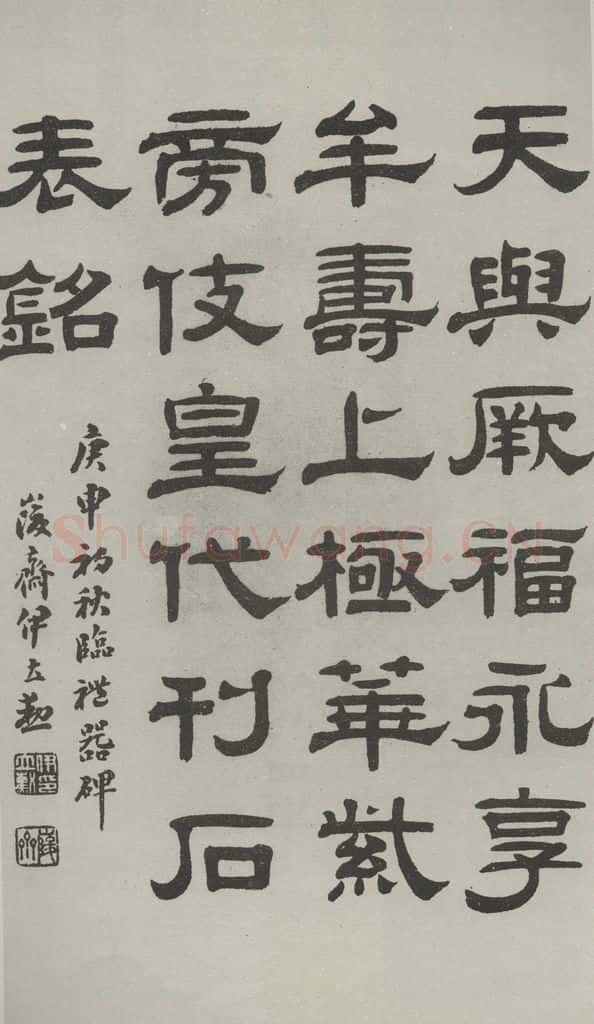 天與厥福永享
牟壽上極華紫
旁伎皇代刊石
表銘
庚申初秋臨禮器碑
峻齋伊立勳
Shufawang.CN